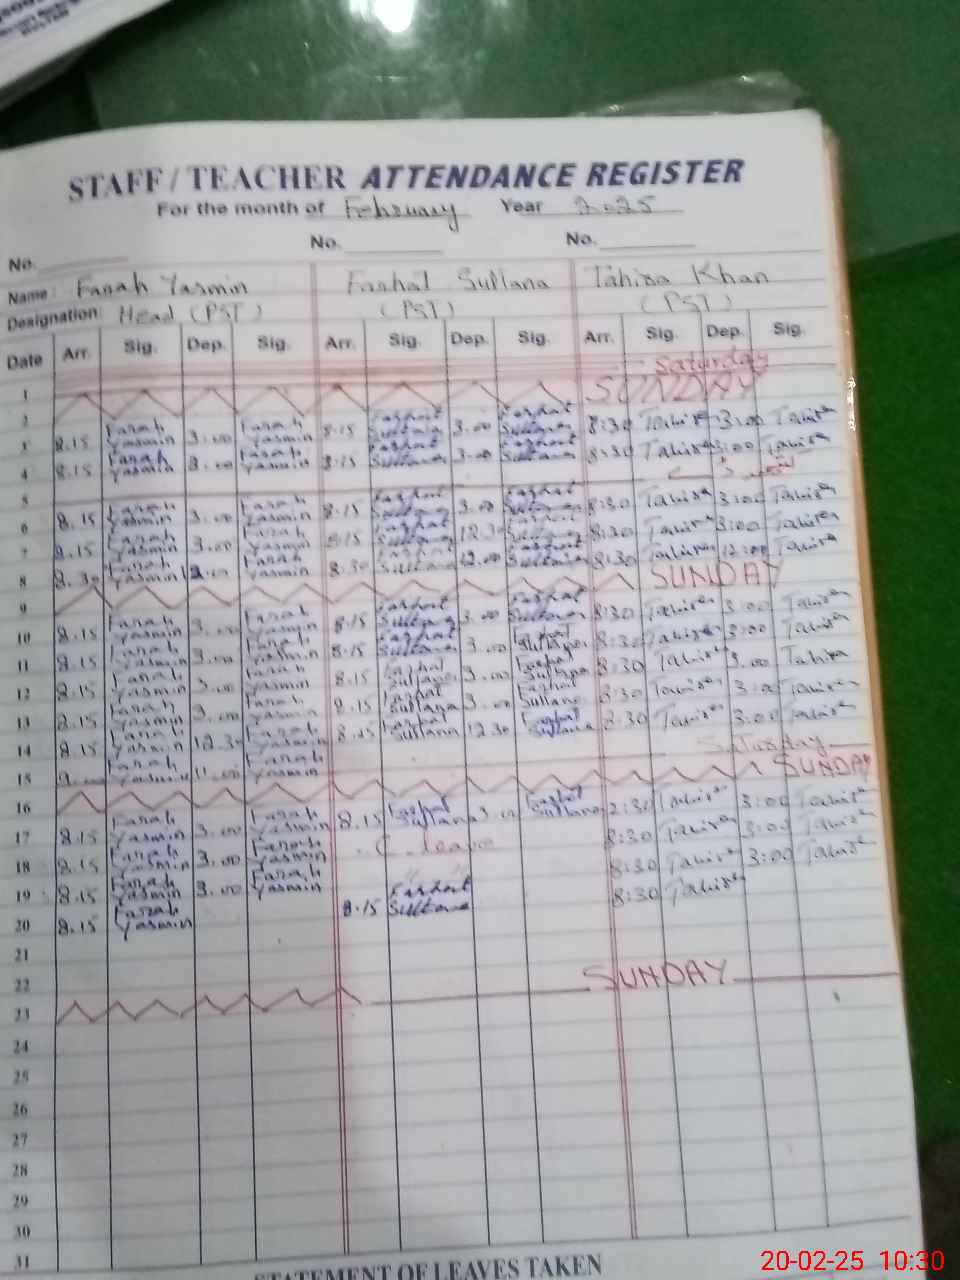 STAFF / TEACHER ATTENDANCE REGISTER
For the month of February Year 2025
No. No. No.
Name: Farah Yasmin Farhat Sultana Tahira Khan
Designation: Head (PST) (PST) (PST)
Date Arr. Sig. Dep. Sig. Arr. Sig. Dep. Sig. Arr. Sig. Dep. Sig.
1 Saturday
2 SUNDAY
3 8.15 Farah Yasmin 3.00 Farah Yasmin 8:15 Farhat Sultana 3.00 Farhat Sultana 8:30 Tahira 3:00 Tahira
4 8.15 Farah Yasmin 3.00 Farah Yasmin 8:15 Farhat Sultana 3.00 Farhat Sultana 8:30 Tahira 3:00 Tahira
5
6 8.15 Farah Yasmin 3.00 Farah Yasmin 8:15 Farhat Sultana 3.00 Farhat Sultana 8:30 Tahira 3:00 Tahira
7 8.15 Farah Yasmin 3.00 Farah Yasmin 8:15 Farhat Sultana 12.30 Farhat Sultana 8:30 Tahira 3:00 Tahira
8 8.30 Farah Yasmin Farah Yasmin 8:30 Farhat Sultana 12.00 Farhat Sultana 8:30 Tahira 12:00 Tahira
9 SUNDAY
10 8.15 Farah Yasmin 3.00 Farah Yasmin 8:15 Farhat Sultana 3.00 Farhat Sultana 8:30 Tahira 3:00 Tahira
11 8.15 Farah Yasmin 3.00 Farah Yasmin 8:15 Farhat Sultana 3.00 Farhat Sultana 8:30 Tahira 3:00 Tahira
12 8.15 Farah Yasmin 3.00 Farah Yasmin 8.15 Farhat Sultana 3.00 Farhat Sultana 8:30 Tahira 3.00 Tahira
13 8.15 Farah Yasmin 3.00 Farah Yasmin 8.15 Farhat Sultana 3.00 Farhat Sultana 8:30 Tahira 3:00 Tahira
14 8.15 Farah Yasmin 12.30 Farah Yasmin 8.15 Farhat Sultana 12.30 Farhat Sultana 8:30 Tahira 3:00 Tahira
15 Farah Yasmin 11.00 Farah Yasmin Saturday
16 SUNDAY
17 8.15 Farah Yasmin 3.00 Farah Yasmin 8.15 Farhat Sultana 3.00 Farhat Sultana 8:30 Tahira 3:00 Tahira
18 8.15 Farah Yasmin 3.00 Farah Yasmin C leave 8:30 Tahira 3:00 Tahira
19 8.15 Farah Yasmin 3.00 Farah Yasmin " " 8:30 Tahira 3:00 Tahira
20 8.15 Farah Yasmin 8.15 Farhat Sultana 8:30 Tahira
21
22
23 SUNDAY
24
25
26
27
28
29
30
31
STATEMENT OF LEAVES TAKEN
20-02-25 10:30